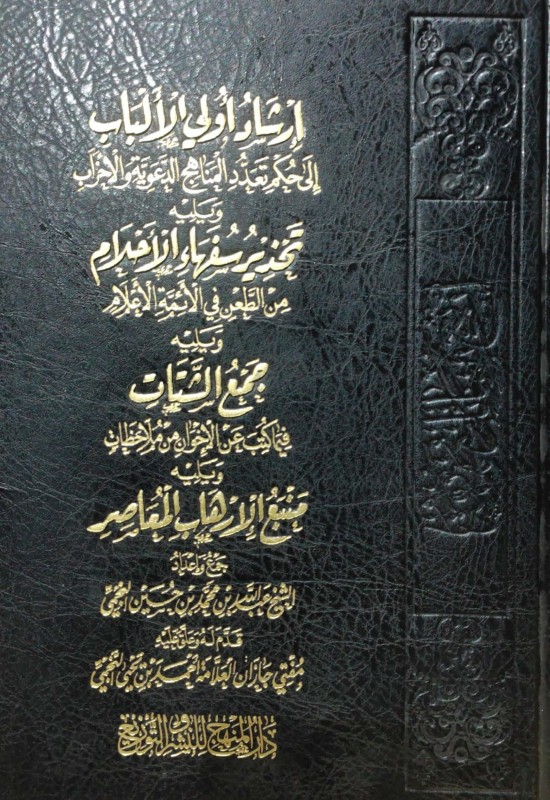 إِرْشَادُ أُولِي الأَلْبَابِ
إِلَى حُكْمِ تَعَدُّدِ المَنَاهِجِ الدَّعَوِيَّةِ وَالأَحْزَابِ
وَيَلِيْهِ
تَحْذِيْرُ سُفَهَاءِ الأَحْلَامِ
مِنَ الطَّعْنِ فِي الأَئِمَّةِ الأَعْلَامِ
وَيَلِيْهِ
جَمْعُ الشَّتَاتِ
فِيْمَا كُتِبَ عَنِ الإِخْوَانِ مِنْ مُلَاحَظَاتٍ
وَيَلِيْهِ
مَنْبَعُ الإِرْهَابِ المُعَاصِرِ
جَمْعُ وَإِعْدَادُ
الشَّيْخِ عَبْدِ اللهِ بْنِ مُحَمَّدِ بْنِ حُسَيْنٍ النَّجْمِيِّ
قَدَّمَ لَهُ وَعَلَّقَ عَلَيْهِ
مُفْتِي جَازَانَ العَلَّامَةُ أَحْمَدُ بْنُ يَحْيَى النَّجْمِيُّ
دَارُ المِنْهَاجِ لِلنَّشْرِ وَالتَّوْزِيْعِ